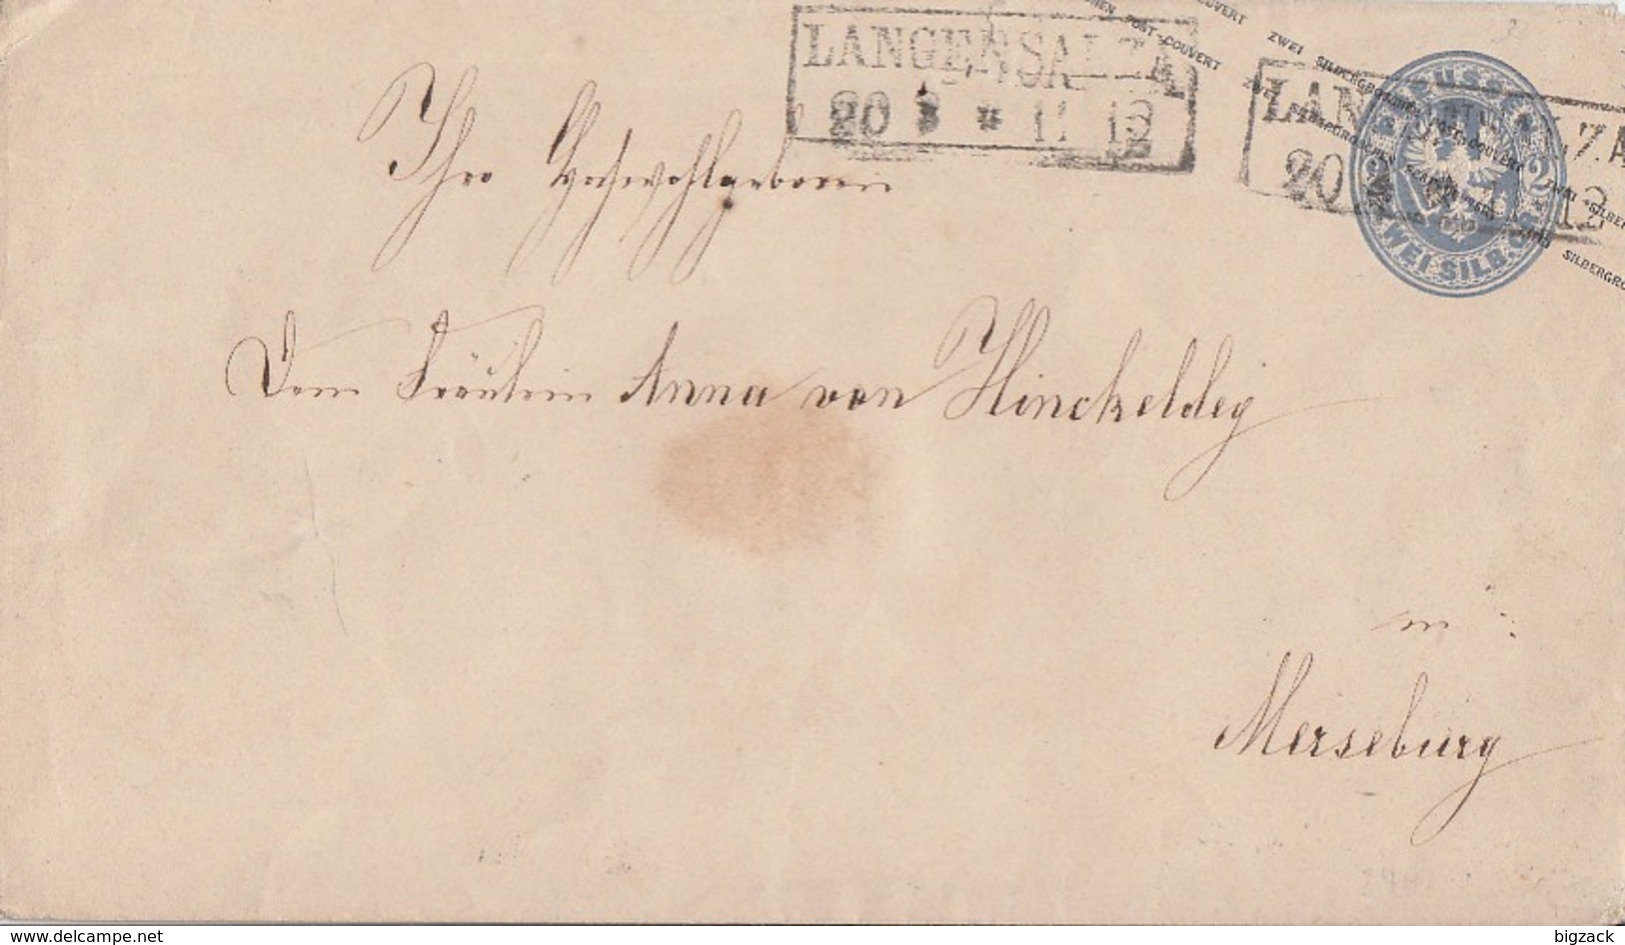 COUVERT ZWEI SILBERGROSCHEN POST-COUVERT ZWEI SILBERGRO
LANGENSALZA
20 3 * 11 12
PREUSSEN
2 2
ZWEI SILB. GR.
Ihro Hochwohlgeboren
Dem Fräulein Anna von Hinckeldey
in
Merseburg
www.delcampe.net
bigzack